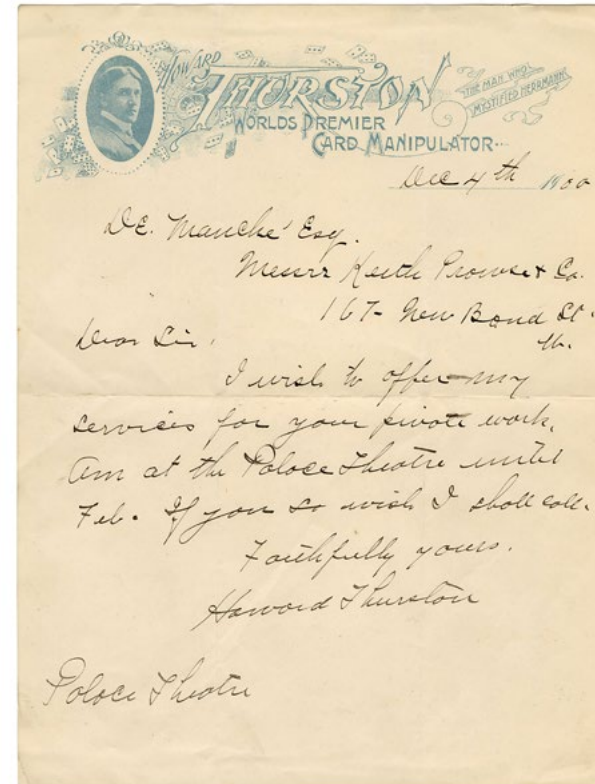 HOWARD
THURSTON
WORLDS PREMIER
CARD MANIPULATOR
THE MAN WHO
MYSTIFIED HERRMANN
Dec 4th 1900
DE. Manché Esq.
Messrs Keith Prowse & Co.
167 - New Bond St.
W.
Dear Sir,
I wish to offer my
services for your private work.
Am at the Palace Theatre until
Feb. If you so wish I shall call.
Faithfully yours.
Howard Thurston
Palace Theatre